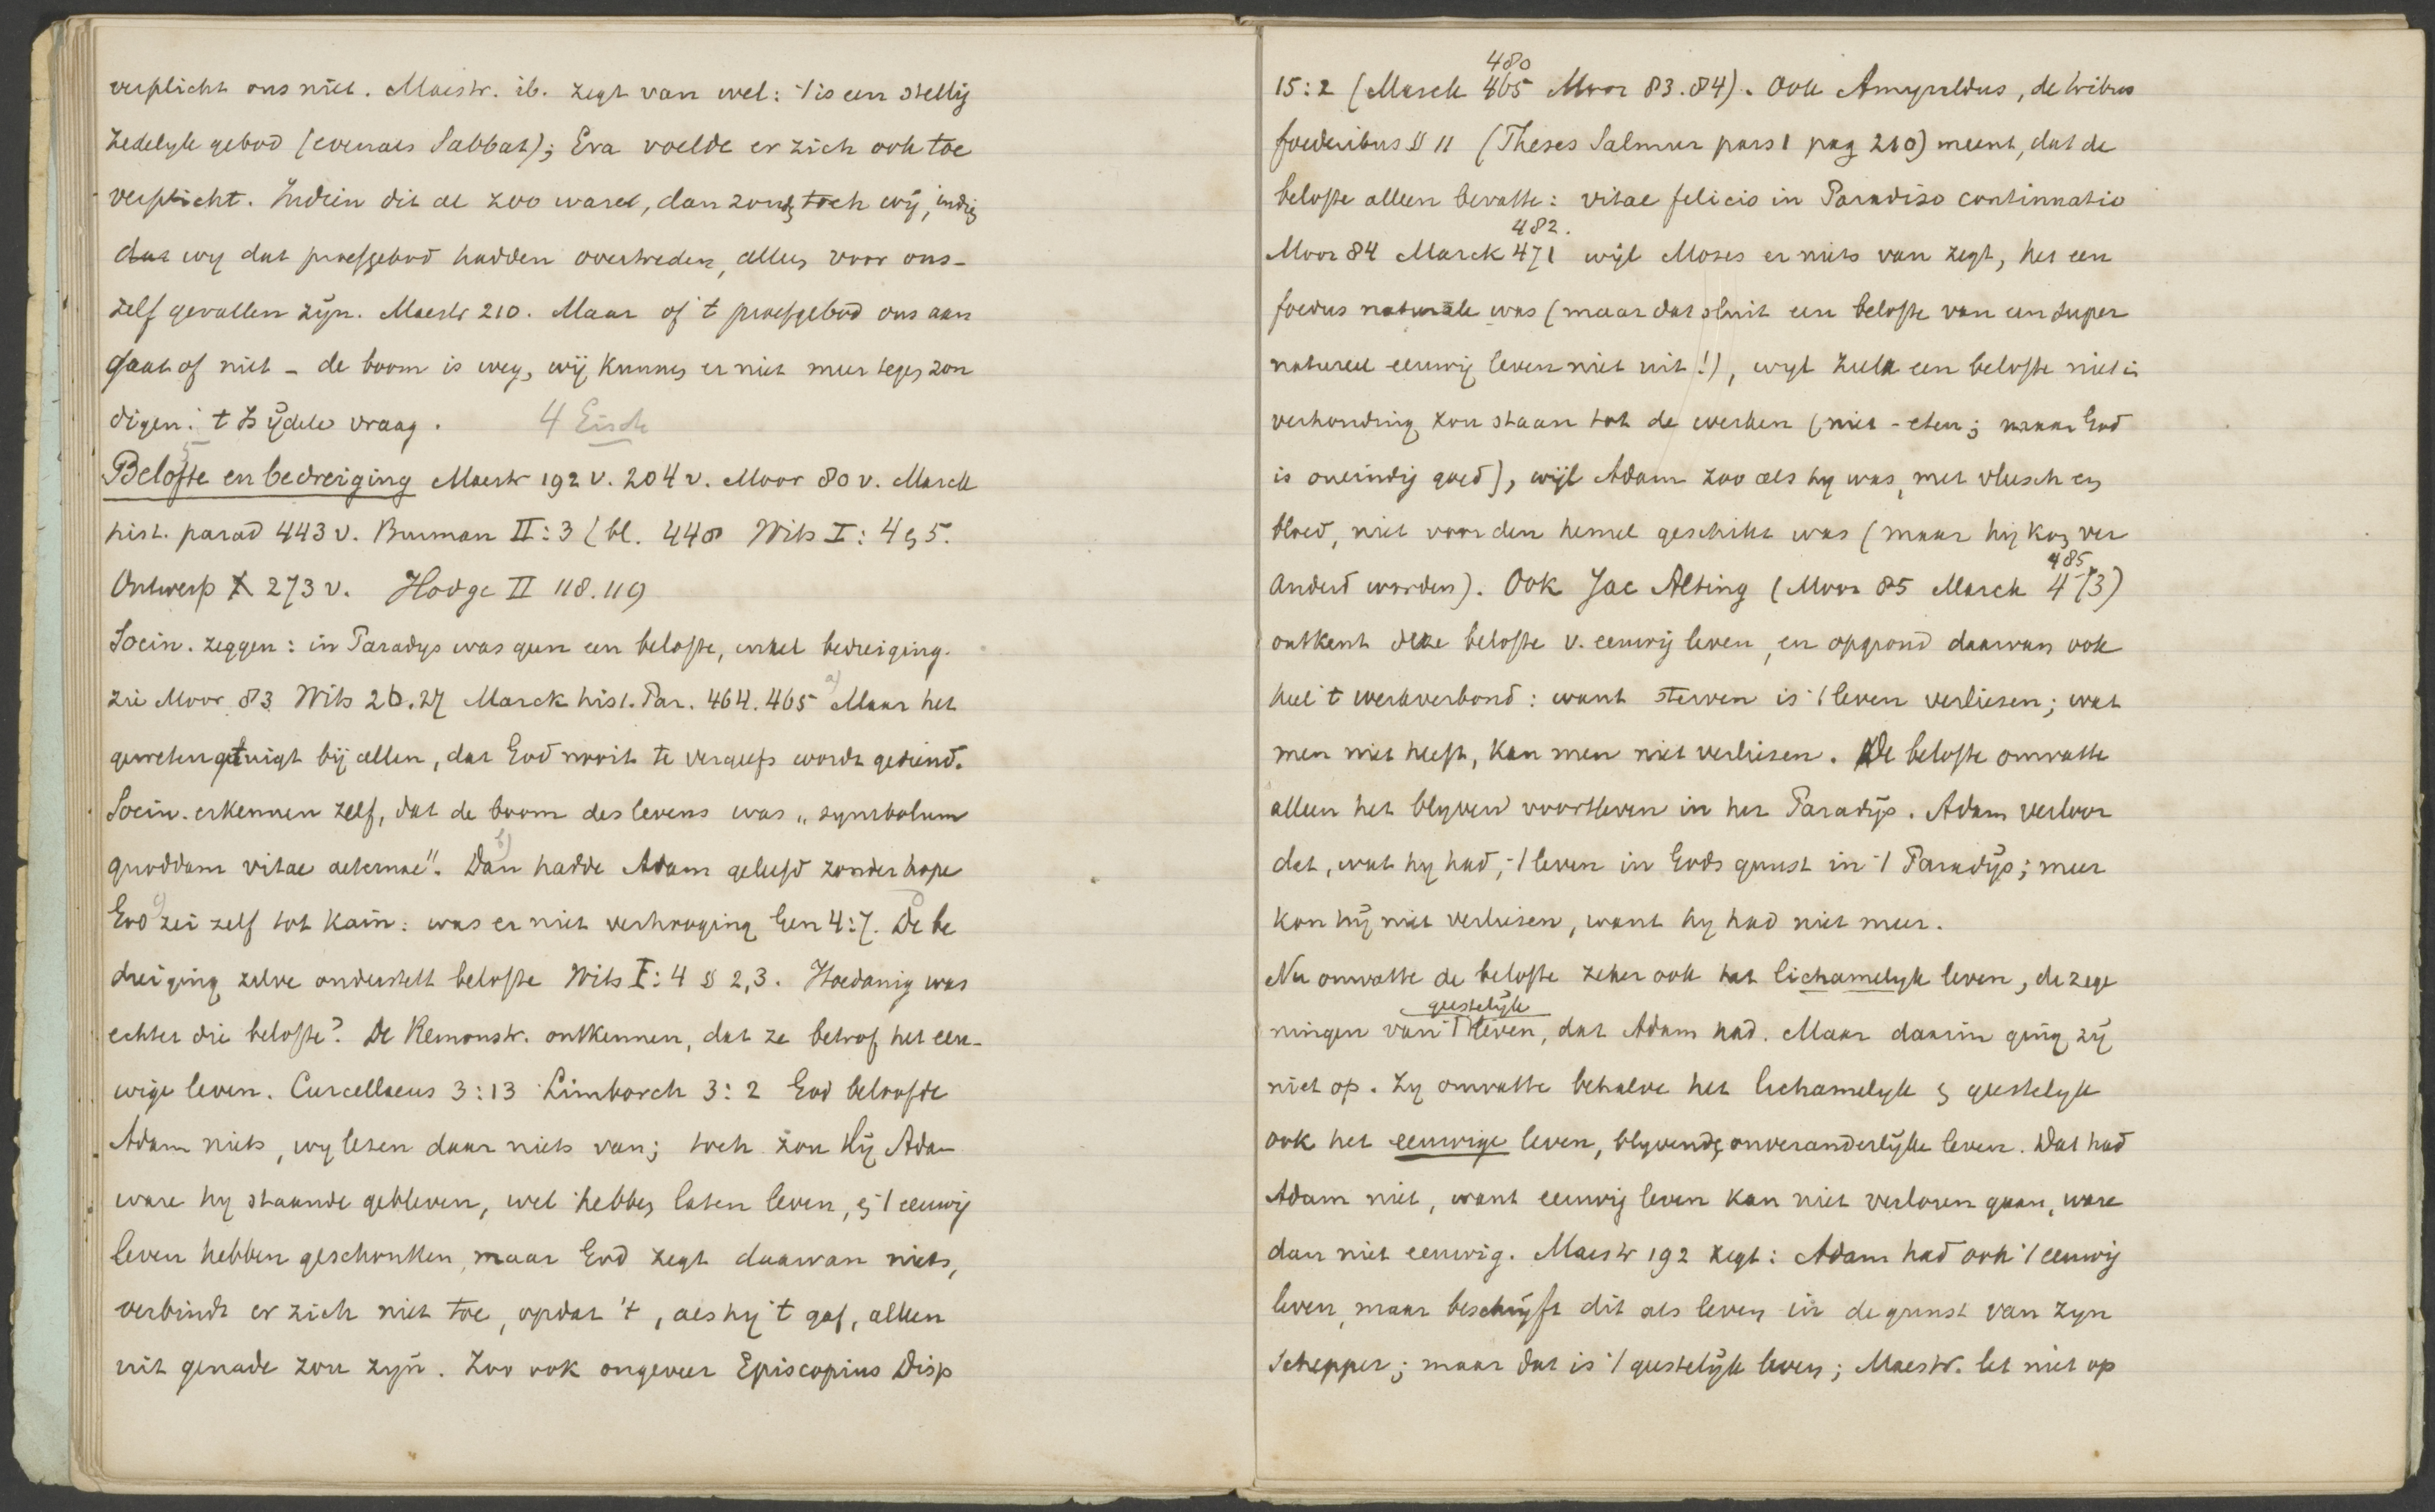 verplicht ons niet. Maestr. ib. zegt van wel: 't is een stellig
zedelyk gebod (evenals Sabbat); Eva voelde er zich ook toe
verplicht. Indien dit al zoo ware, dan zoudẽ toch wij, indiẽ
dat wy dat proefgebod hadden overtreden, allẽ voor ons-
zelf gevallen zÿn. Maestr 210. Maar of 't proefgebod ons aan
gaat of niet - de boom is weg, wij kunnẽ er niet meer tegẽ zon
digen: 't is ÿdele vraag. 4 Eisch
5
Belofte en bedreiging Maestr 192 v. 204 v. Moor 80 v. Marck
hist. parad 443 v. Burman II:3 (bl. 448 Wits I: 4 & 5.
Ontwerp X 273 v. Hodge II 118.119
Socin. zeggen: in Paradys was geen een belofte, enkel bedreiging.
zie Moor 83 Wits 26.27 Marck hist. Par. 464. 465 a) Maar het
geweten getuigt bij allen, dat God nooit te vergeefs wordt gediend.
Socin. erkennen zelf, dat de boom des levens was „symbolum
quoddam vitae aeternae". b) Dan hadde Adam geleefd zonder hope
c) God zei zelf tot Kaïn: was er niet verhooging Gen 4:7. d) De be
dreiging zelve onderstelt belofte Wits I: 4 § 2,3. Hoedanig was
echter die belofte? De Remonstr. ontkennen, dat ze betrof het eeu-
wige leven. Curcellaeus 3:13 Limborch 3:2 God beloofde
Adam niets, wy lezen daar niets van; toch zou Hij Adam
ware hy staande gebleven, wel hebbẽ laten leven, & 't eeuwig
leven hebben geschonken, maar God zegt daarvan niets,
verbindt er zich niet toe, opdat 't, als hy 't gaf, alleen
uit genade zou zyn. Zoo ook ongeveer Episcopius Disp
480
15:2 (Marck 465 Moor 83.84). Ook Amyraldus, de tribus
foederibus § 11 (Theses Salmur pars 1 pag 210) meent, dat de
belofte alleen bevatte: vitae felicis in Paradiso continuatio
482.
Moor 84 Marck 471 wijl Moses er niets van zegt, het een
foedus naturale was (maar dat sluit een belofte van een super
natureel eeuwig leven niet uit!), wyl zulk een belofte niet in
verhouding zou staan tot de werken (niet-eten; maar God
is oneindig goed), wijl Adam zoo als hy was, met vleesch en
bloed, niet voor den hemel geschikt was (maar hij kon ver
485
anderd worden). Ook Jac Alting (Moor 85 Marck 473)
ontkent deze belofte v. eeuwig leven, en opgrond daarvan ook
heel 't werkverbond: want sterven is 't leven verliezen; wat
men niet heeft, kan men niet verliezen. De belofte omvatte
alleen het blyvend voortleven in het Paradijs. Adam verloor
dat, wat hy had, 't leven in Gods gunst in 't Paradÿs; meer
kon hÿ niet verliezen, want hy had niet meer.
Nu omvatte de belofte zeker ook het lichamelyk leven, de zege
geestelÿk
ningen van 't leven, dat Adam had. Maar daarin ging zÿ
niet op. Zy omvatte behalve het lichamelyk & geestelyk
ook het eeuwige leven, blyvendẽ onveranderlÿke leven. Dat had
Adam niet, want eeuwig leven kan niet verloren gaan, ware
dan niet eeuwig. Maestr 192 zegt: Adam had ook 't eeuwig
leven, maar beschrijft dit als leven in de gunst van zyn
Schepper; maar dat is 't geestelÿk leven; Maestr. let niet op